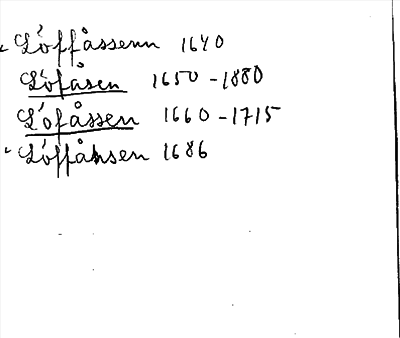 Löffåssenn 1640
Löfåsen 1650-1880
Löfåssen 1660-1715
Löffånsen 1686